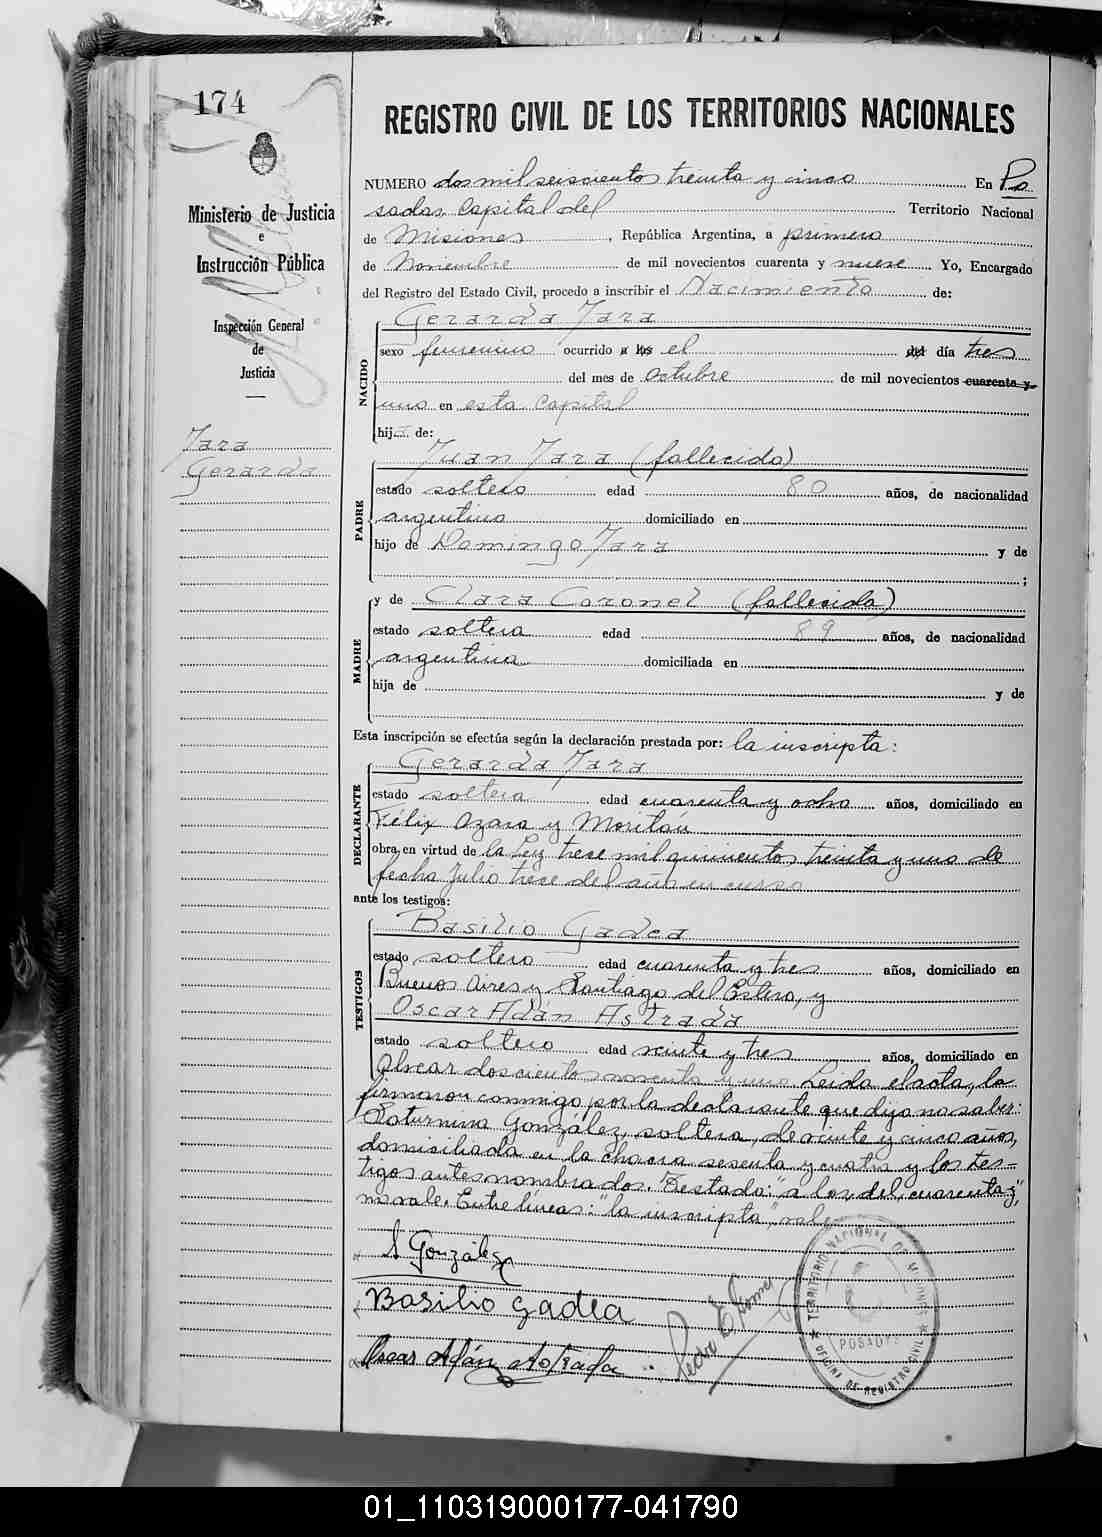 174
REGISTRO CIVIL DE LOS TERRITORIOS NACIONALES
Ministerio de Justicia
e
Instrucción Pública
Inspección General
de
Justicia
Jara
Gerarda
NUMERO dos mil seiscientos treinta y cinco En Po
sadas, Capital del Territorio Nacional
de Misiones, República Argentina, a primero
de Noviembre de mil novecientos cuarenta y nueve Yo, Encargado
del Registro del Estado Civil, procedo a inscribir el Nacimiento de:
NACIDO
Gerarda Jara
sexo femenino ocurrido a los el del día tres
del mes de Octubre de mil novecientos cuarenta y
uno en esta Capital
hija de:
PADRE
Juan Jara (fallecido)
estado soltero edad 80 años, de nacionalidad
argentino domiciliado en
hijo de Domingo Jara y de
;
MADRE
y de Clara Coronel (fallecida)
estado soltera edad 89 años, de nacionalidad
argentina domiciliada en
hija de y de
Esta inscripción se efectúa según la declaración prestada por: la inscripta:
DECLARANTE
Gerarda Jara
estado soltera edad cuarenta y ocho años, domiciliado en
Félix Azara y Moritán
obra en virtud de la Ley trece mil quinientos treinta y uno de
fecha Julio trece del año en curso
ante los testigos:
TESTIGOS
Basilio Gadea
estado soltero edad cuarenta y tres años, domiciliado en
Buenos Aires y Santiago del Estero, y
Oscar Adán Astrada
estado soltero edad veinte y tres años, domiciliado en
Alvear doscientos noventa y uno. Leida el acta, la
firmaron conmigo, por la declarante que dijo no saber:
Saturnina González, soltera, de veinte y cinco años,
domiciliada en la chacra sesenta y cuatro y los tes-
tigos antes nombrados. Testado: "a los, del, cuarenta y",
no vale. Entre líneas: "la inscripta", vale.
S González
Basilio Gadea
Oscar Adán Astrada
Pedro E. Gomez
TERRITORIO NACIONAL DE MISIONES
POSADAS
OFICINA DE REGISTRO CIVIL
01_110319000177-041790